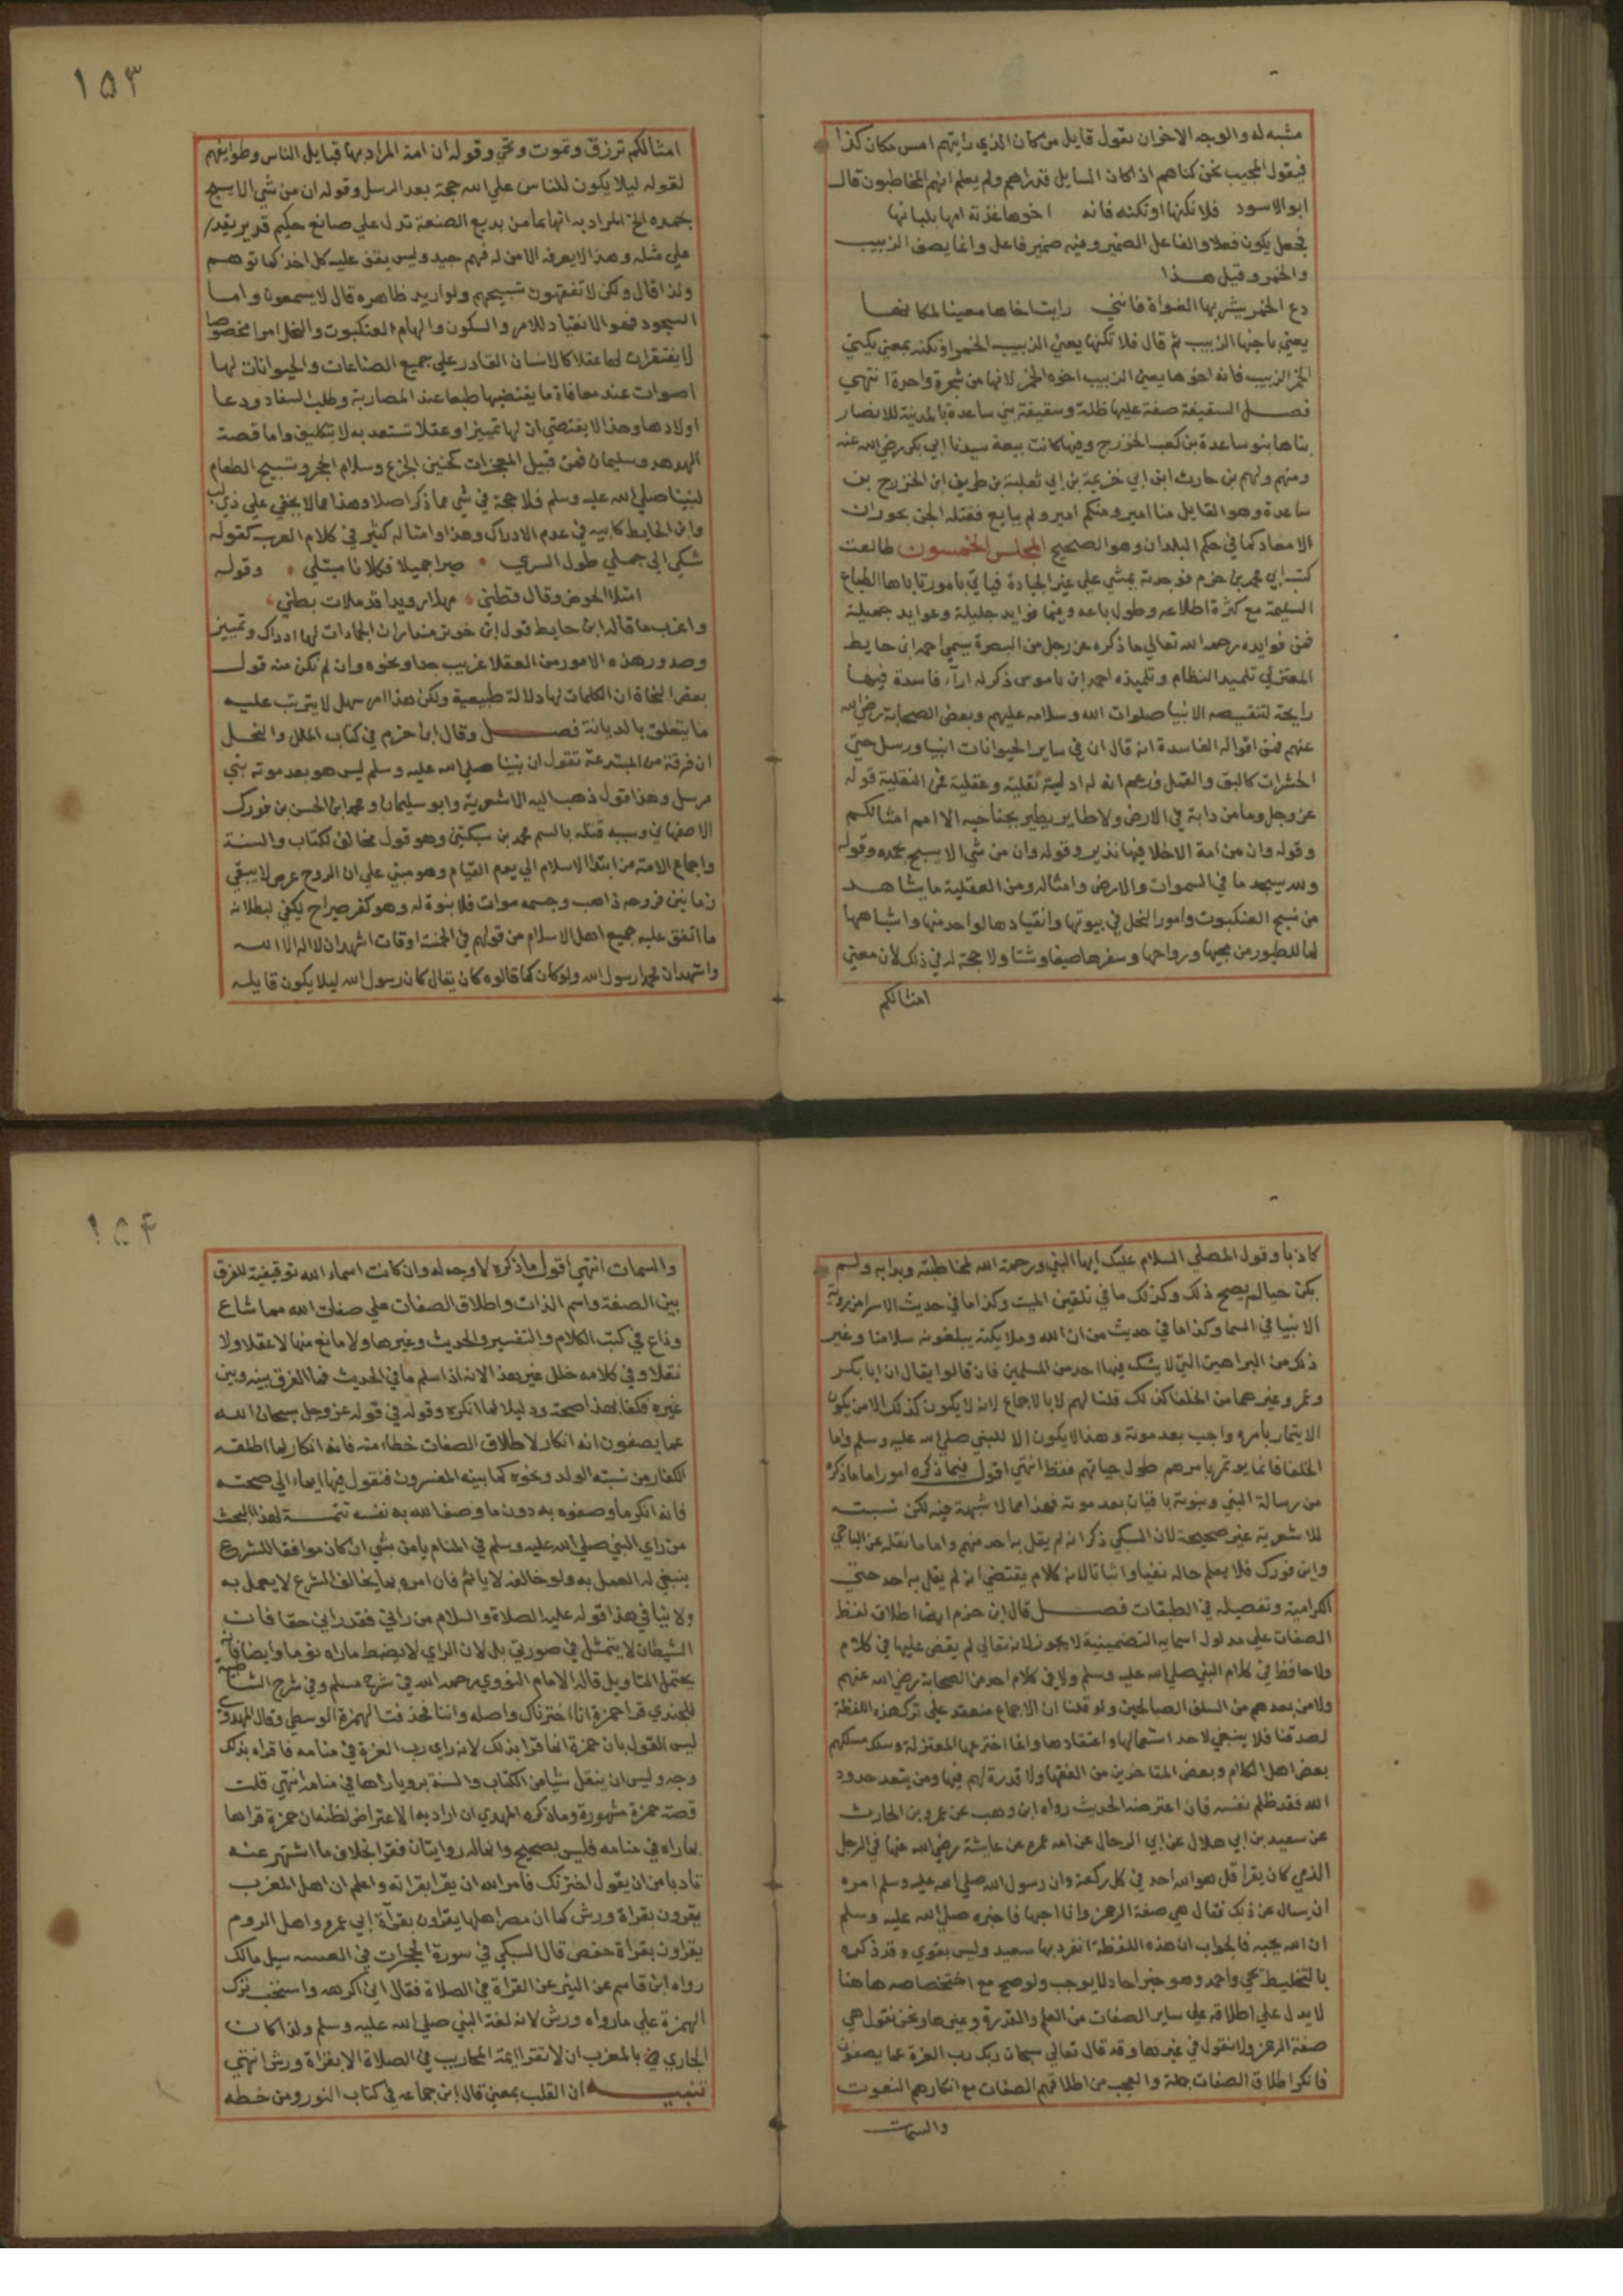 مشبه له والوجه الاخر ان يقول قايل من كان الذي رايتهم امس مكان كذا
فيقول المجيب نحن كناهم اذا كان السايل قد راهم ولم يعلم انهم المخاطبون قال
ابو الاسود فلا تكنها او تكنه فانه اخوها غذته امها بلبانها
فجعل يكون فعلا والفاعل الضمير وفيه ضمير فاعل وانما يصف الزبيب
والخمر وقبل هذا
دع الخمر يشربها الغواة فانني رايت اخاها مغنيا لمكانها
يعني باخيها الزبيب ثم قال فلا تكنها يعني الزبيب الخمر او تكنه بمعني يكني
الخمر الزبيب فانه اخوها يعني الزبيب اخوه الخمر لانها من شجرة واحدة انتهي
فصل السقيفة صفة عليها ظلة وسقيفة بني ساعدة بالمدينة للانصار
بناها بنو ساعدة بن كعب الخزرج وفيها كانت بيعة سيدنا ابي بكر رضي الله عنه
ومنهم دلهم بن حارث ابن ابي خزيمة بن ابي ثعلبة بن طريف ابن الخزرج بن
ساعدة وهو القايل منا امير ومنكم امير ولم يبايع فقتله الجن بحوران
كما في حكم البلدان وهو الصحيح المجلس الخمسون طالعت
كتب ابي محمد بن حزم فوجدته يمشي علي غير الجادة فياتي بامور تاباها الطباع
السليمة مع كثرة اطلاعه وطول باعه وفيها فوايد جليلة وعوايد جميلة
فمن فوايده رحمه الله تعالي ما ذكره عن رجل من البصرة يسمي احمد ابن حايط
المعتزلي تلميذ النظام وتلميذه احمد ابن باموس ذكر له آراء فاسدة فيها
رايحة لتنقيصه الانبيا صلوات الله وسلامه عليهم وبعض الصحابة رضي الله
عنهم فمن اقواله الفاسدة انه قال ان في ساير الحيوانات انبيا ورسل حتي
الحشرات كالبق والقمل وزعم انه له ادلية نقلية وعقلية فمن النقلية قوله
عز وجل وما من دابة في الارض ولا طاير يطير بجناحيه الا امم امثالكم
وقوله وان من امة الا خلا فيها نذير وقوله وان من شي الا يسبح بحمده وقوله
ولله يسجد ما في السموات والارض وامثاله ومن العقلية ما يشاهد
من نسج العنكبوت وامور النحل في بيوتها وانقيادها لواحد منها واشباهها
لما للطيور من مجيها ورواحها وسفرها صيفا وشتا ولا حجة له في ذلك لان معني
امثالكم
١٥٣
امثالكم ترزق وتموت وتحي وقوله ان امة المراد بها قبايل الناس وطوايفهم
لقوله ليلا يكون للناس علي الله حجة بعد الرسل وقوله ان من شي الا يسبح
بحمده الخ المراد به انها بما من بديع الصنعة تدل علي صانع حكيم قدير يقدر
علي مثله وهذا لا يعرفه الا من له فهم جيد وليس يقف عليه كل احد كما توهم
ولذا قال ولكن لا تفقهون تسبيحهم ولو اريد ظاهره قال لا يسمعون واما
السجود فهو الانقياد للامر والسكون والهام العنكبوت والنحل امرا مخصوصا
لا يفتقران لها عقلا كالانسان القادر علي جميع الصناعات والحيوانات لها
اصوات عند معافاة ما يقتضيها طبعا عند المضاربة وطلب السفاد ودعا
اولادها وهذا لا يقتضي ان لها تمييزا وعقلا تستعد به لا تكليف واما قصة
الهدهد وسليمان فمن قبيل المعجزات كحنين الجذع وسلام الحجر وتسبيح الطعام
لنبينا صلي الله عليه وسلم فلا حجة في شي مما ذكر اصلا وهذا مما لا يخفي علي ذي لب
وابن الحايط كابيه في عدم الادراك وهذا وامثاله كثير في كلام العرب كقوله
شكي الي جملي طول السري صبرا جميلا فكلانا مبتلي وقوله
امتلا الحوض وقال قطني مهلا رويدا قد ملات بطني
واغرب ما قاله ابن حايط قول ابن خويز منداران الجمادات لها ادراك وتمييز
وصدور هذه الامور من العقلا غريب جدا ونحوه وان لم تكن منه قول
بعض النحاة ان الكلمات لها دلالة طبيعية ولكن هذا امر سهل لا يترتب عليه
ما يتعلق بالديانة فصل وقال ابن حزم في كتاب الملل والنحل
ان فرقة من المبتدعة تقول ان نبينا صلي الله عليه وسلم ليس هو بعد موته بنبي
مرسل وهذا قول ذهب اليه الاشعرية وابو سليمان ومحمد ابن الحسن بن فورك
الاصفهاني وسببه قتله بالسم محمد بن سبكتين وهو قول مخالف لكتاب والسنة
واجماع الامة من ابتدا الاسلام الي يوم القيام وهو مبني علي ان الروح عرض لا يبقي
زمانين فروحه ذاهب وجسمه موات فلا نبوة له وهو كفر صراح يكفي لبطلانه
ما اتفق عليه جميع اهل الاسلام من قولهم في الخمسة اوقات اشهد ان لا اله الا الله
واشهد ان محمدا رسول الله ولو كان كما قالوه كان يقال كان رسول الله ليلا يكون قايله
كاذبا وقول المصلي السلام عليك ايها النبي ورحمة الله لمخاطبته وبدايه ولم
يكن حيا لم يصح ذلك وكذلك ما في تلقين الميت وكذا ما في حديث الاسرا من روية
الانبيا في السما وكذا ما في حديث من ان الله وملايكته يبلغونه سلامنا وغير
ذلك من البراهين التي لا يشك فيها احد من المسلمين فان قالوا يقال ان ابا بكر
وعمر وغيرهما من الخلفا كذلك قلنا لهم لا بالاجماع لانه لا يكون كذلك الا من يكون
الايتمار بامره واجب بعد موته وهذا لا يكون الا للنبي صلي الله عليه وسلم واما
الخلفا فانما يوتمر بامرهم طول حياتهم فقط انتهي اقول فيما ذكره امور اما ما ذكره
من رسالة النبي ونبوته باقيان بعد موته فهذا مما لا شبهة فيه لكن نسبته
للاشعرية غير صحيحة لان السبكي ذكر انه لم يقل به احد منهم واما ما نقله عن الباجي
وابن فورك فلا يعلم حاله نفيا واثباتا لانه كلام يقتضي انه لم يقل به احد حتي
الكرامية وتفصيله في الطبقات فصل قال ابن حزم ايضا اطلاق لفظ
الصفات علي مدلول اسمايه التضمينية لا يجوز لانه تعالي لم ينص عليها في كلام
ولا حافظ في كلام النبي صلي الله عليه وسلم ولا في كلام احد من الصحابة رضي الله عنهم
ولا من بعدهم من السلف الصالحين ولو قلنا ان الاجماع منعقد علي ترك هذه اللفظة
لصدقنا فلا ينبغي لاحد استعمالها واعتقادها وانما اخترعها المعتزلة وسلك مسلكهم
بعض اهل الكلام وبعض المتاخرين من الفقها ولا قدرة لهم فيها ومن يتعد حدود
الله فقد ظلم نفسه فان اعترضه الحديث رواه ابن وهب عن عمرو بن الحارث
عن سعيد بن ابي هلال عن ابي الرجال عن امه عمره عن عايشة رضي الله عنها في الرجل
الذي كان يقرا قل هو الله احد في كل ركعة وان رسول الله صلي الله عليه وسلم امره
ان يسال عن ذلك فقال هي صفة الرحمن وانا احبها فاخبره صلي الله عليه وسلم
ان الله يحبه فالجواب ان هذه اللفظة انفرد بها سعيد وليس بقوي وقد ذكره
بالتخليط يحي واحمد وهو خبر احاد لا يوجب ولو صح مع اختصاصه هاهنا
لا يدل علي اطلاقه علي ساير الصفات من العلم والقدرة وغيرها ونحن نقول هي
صفة الرحمن ولا نقول في غيرها وقد قال تعالي سبحان ربك رب العزة عما يصفون
فانكر اطلاق الصفات جملة والعجب من اطلاقهم الصفات مع انكارهم النعوت
والسمات
١٥٤
والسمات انتهي اقول ما ذكره لا وجه له وان كانت اسماء الله توقيفية للفرق
بين الصفة واسم الذات واطلاق الصفات علي صفات الله مما شاع
وذاع في كتب الكلام والتفسير والحديث وغيرها ولا مانع منها لا عقلا ولا
نقلا وفي كلامه خلل غير هذا لانه اذا سلم ما في الحديث فما الفرق بينه وبين
غيره فكفا بهذا صحة ودليلا لما انكره وقوله في قوله عز وجل سبحان الله
عما يصفون انه انكار لاطلاق الصفات خطاء منه فانه انكار لما اطلقه
الكفار من نسبته الولد ونحوه كما بينه المفسرون فنقول فيها ايماء الي صحته
فانه انكر ما وصفوه به دون ما وصف الله به نفسه تتمة لهذا البحث
من راي النبي صلي الله عليه وسلم في المنام يامن بشي ان كان موافقا للشرع
ينبغي له العمل به ولو خالفه لا ياثم فان امره بما يخالف الشرع لا يعمل به
ولا ينافي هذا قوله عليه الصلاة والسلام من راني فقد راني حقا فان
الشيطان لا يتمثل في صورتي بلي لان الراي لا يضبط ماراه نوما وايضا فانه
يحتمل التاويل قاله الامام النووي رحمه الله في شرح مسلم وفي شرح الشاطبية
للجندي قرا حمزة انا اخترناك واصله واننا فحذفت الهمزة الوسطي وقال المهدوي
ليس القول بان حمزة انما قرا بذلك لانه راي رب العزة في منامه فاقراه بذلك
وجه وليس ان ينقل شيا من الكتاب والسنة برويا راها في منامه انتهي قلت
قصة حمزة مشهورة وما ذكره المهدوي ان اراد بها الاعتراض لظنه ان حمزة قراها
بما راه في منامه فليس بصحيح وانما له روايتان فقرا بخلاف ما اشتهر عنه
تادبا من ان يقول اخترتك فامر الله ان يقرا بقراته واعلم ان اهل المغرب
يقرون بقراة ورش كما ان مصر اهلها يقراون بقرآة ابي عمرو واهل الروم
يقراون بقراة حفص قال السبكي في سورة الحجرات في سيل مالك
رواه ابن قاسم عن النبر عن القراة في الصلاة فقال اني اكرهه واستحب ترك
الهمزة علي ما رواه ورش لانه لغة النبي صلي الله عليه وسلم ولذا كان
الجاري في بالمغرب ان لا تقرا ايمة المحاريب في الصلاة الا بقراة ورش انتهي
تنبيه ان القلب بمعني قال ابن جماعه في كتاب النور ومن خطه